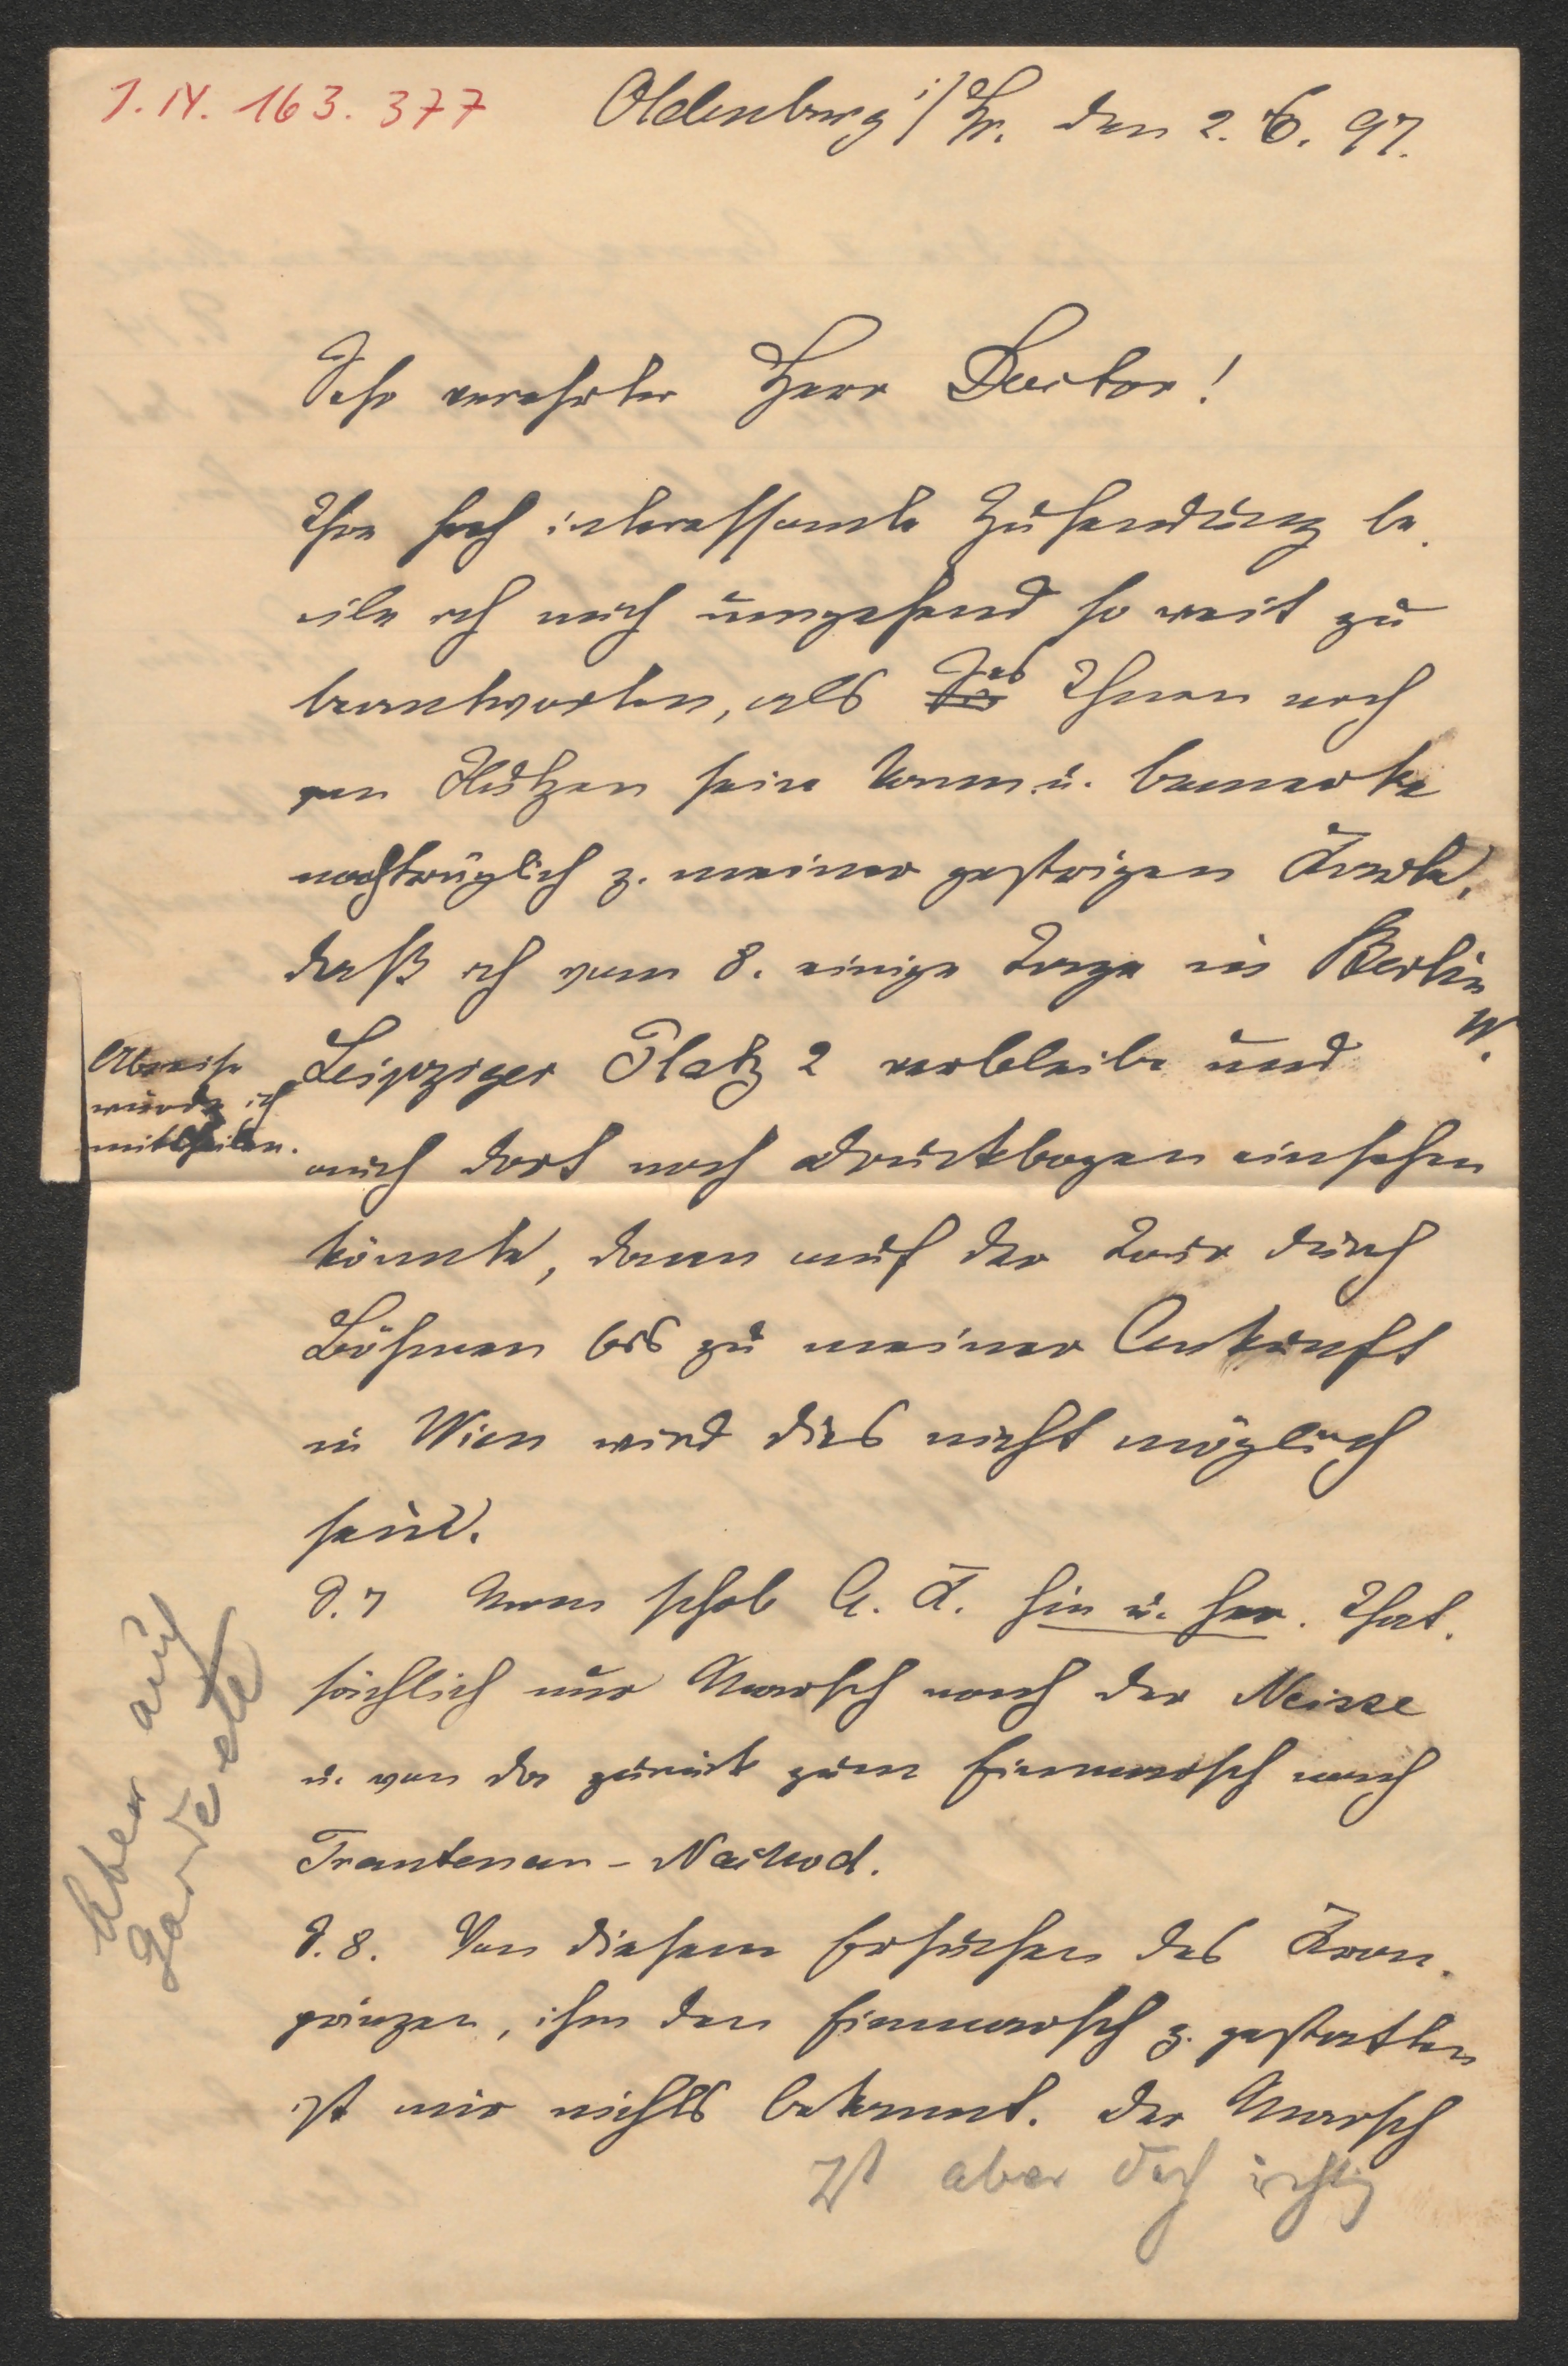 I.N. 163.377
Oldenburg i/Gr. den 2. 6. 97.
Sehr verehrter Herr Doctor!
Ihre hoch interessante Zusendung be-
eile ich mich umgehend so weit zu
beantworten, als es Ihnen noch
von Nutzen sein kann u. bemerke
nachträglich z. meiner gestrigen Karte,
daß ich vom 8. einige Tage in Berlin
W.
Leipziger Platz 2 verbleibe und
Abreise
würde ich
mittheilen.
auch dort noch Druckbogen einsehen
könnte, dann auf der Tour durch
Böhmen bis zu meiner Ankunft
in Wien wird dies nicht möglich
sein.
S. 7 Man schob A. K. hin u. her. That-
sächlich nur Marsch nach der Neisse
u. von da zurück zum Einmarsch nach
Trautenau - Nachod.
Aber auch
Garde etc
S. 8. Von diesem Ersuchen des Kron-
prinzen, ihm den Einmarsch z. gestatten
ist mir nichts bekannt. Der Marsch
Ist aber doch richtig